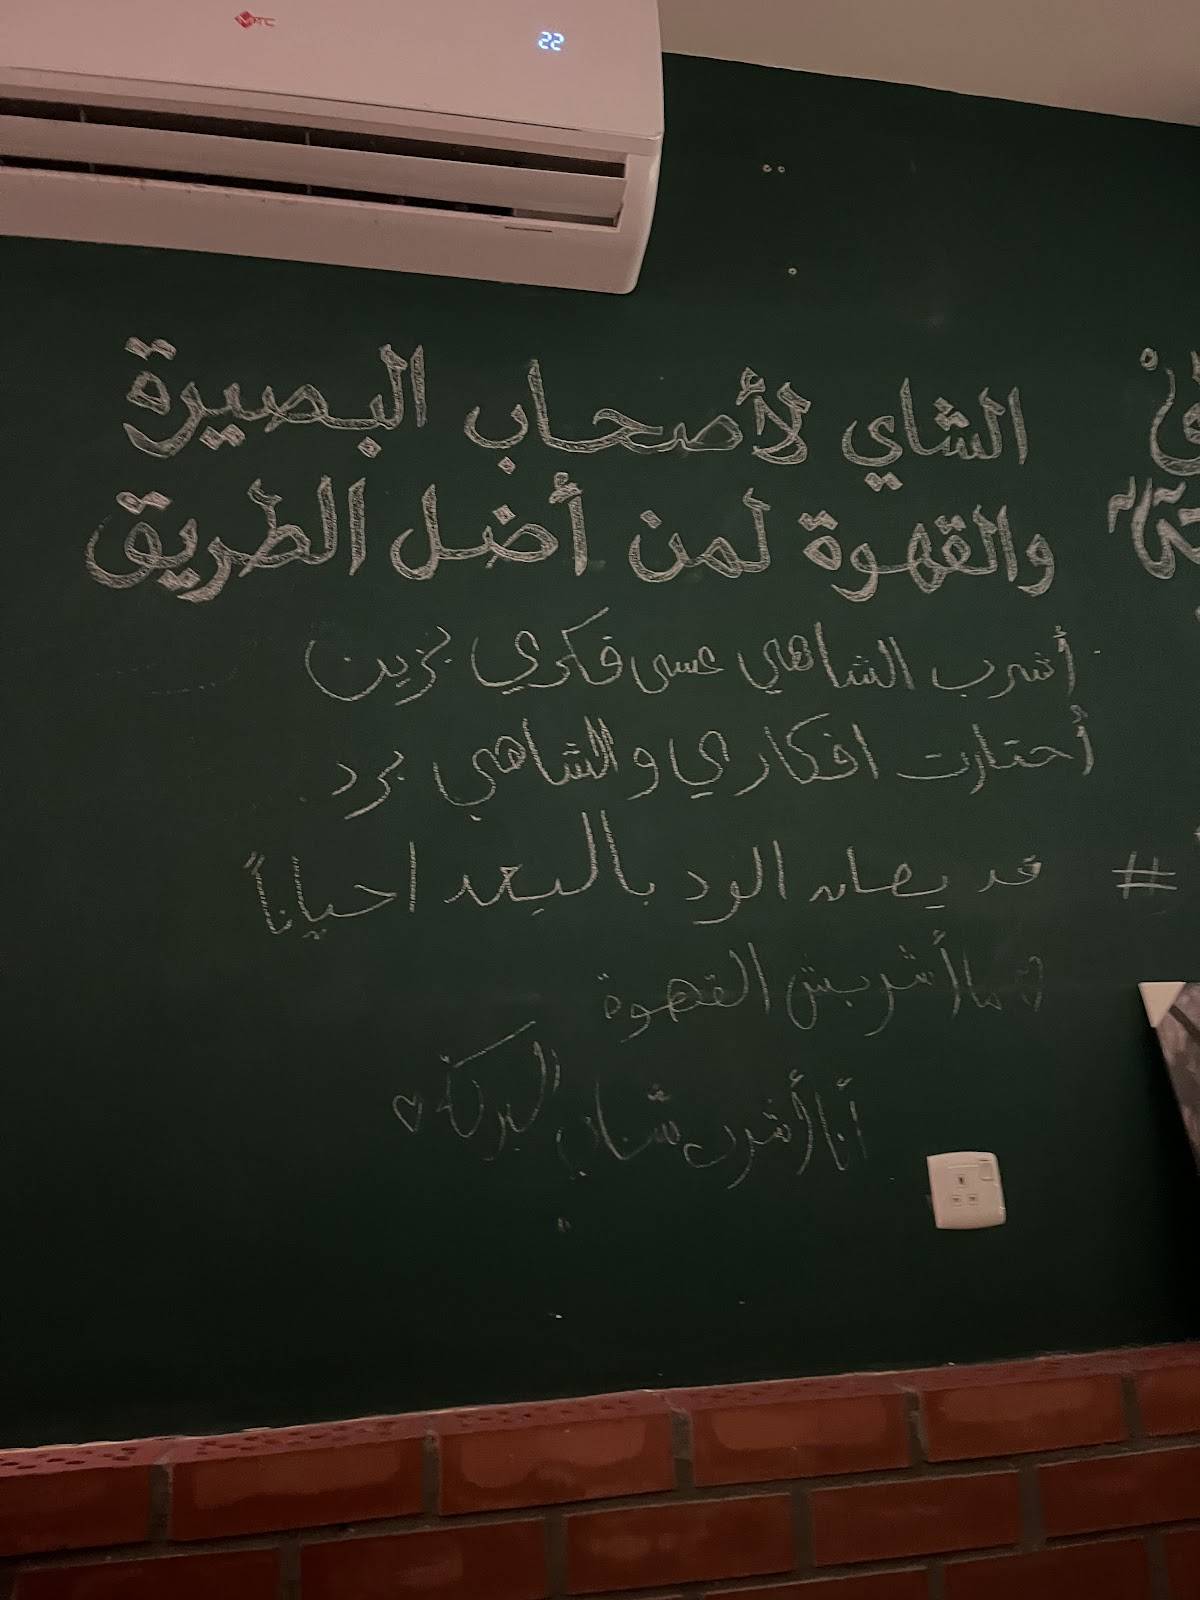 MTC
22
الشاي لأصحاب البصيرة
والقهوة لمن أضل الطريق
أشرب الشاهي عسى فكري يزين
أحتارت افكاري والشاهي برد
# قد يصان الود بالبعد احياناً
ما أشربش القهوة
أنا أشرب شاي البركة